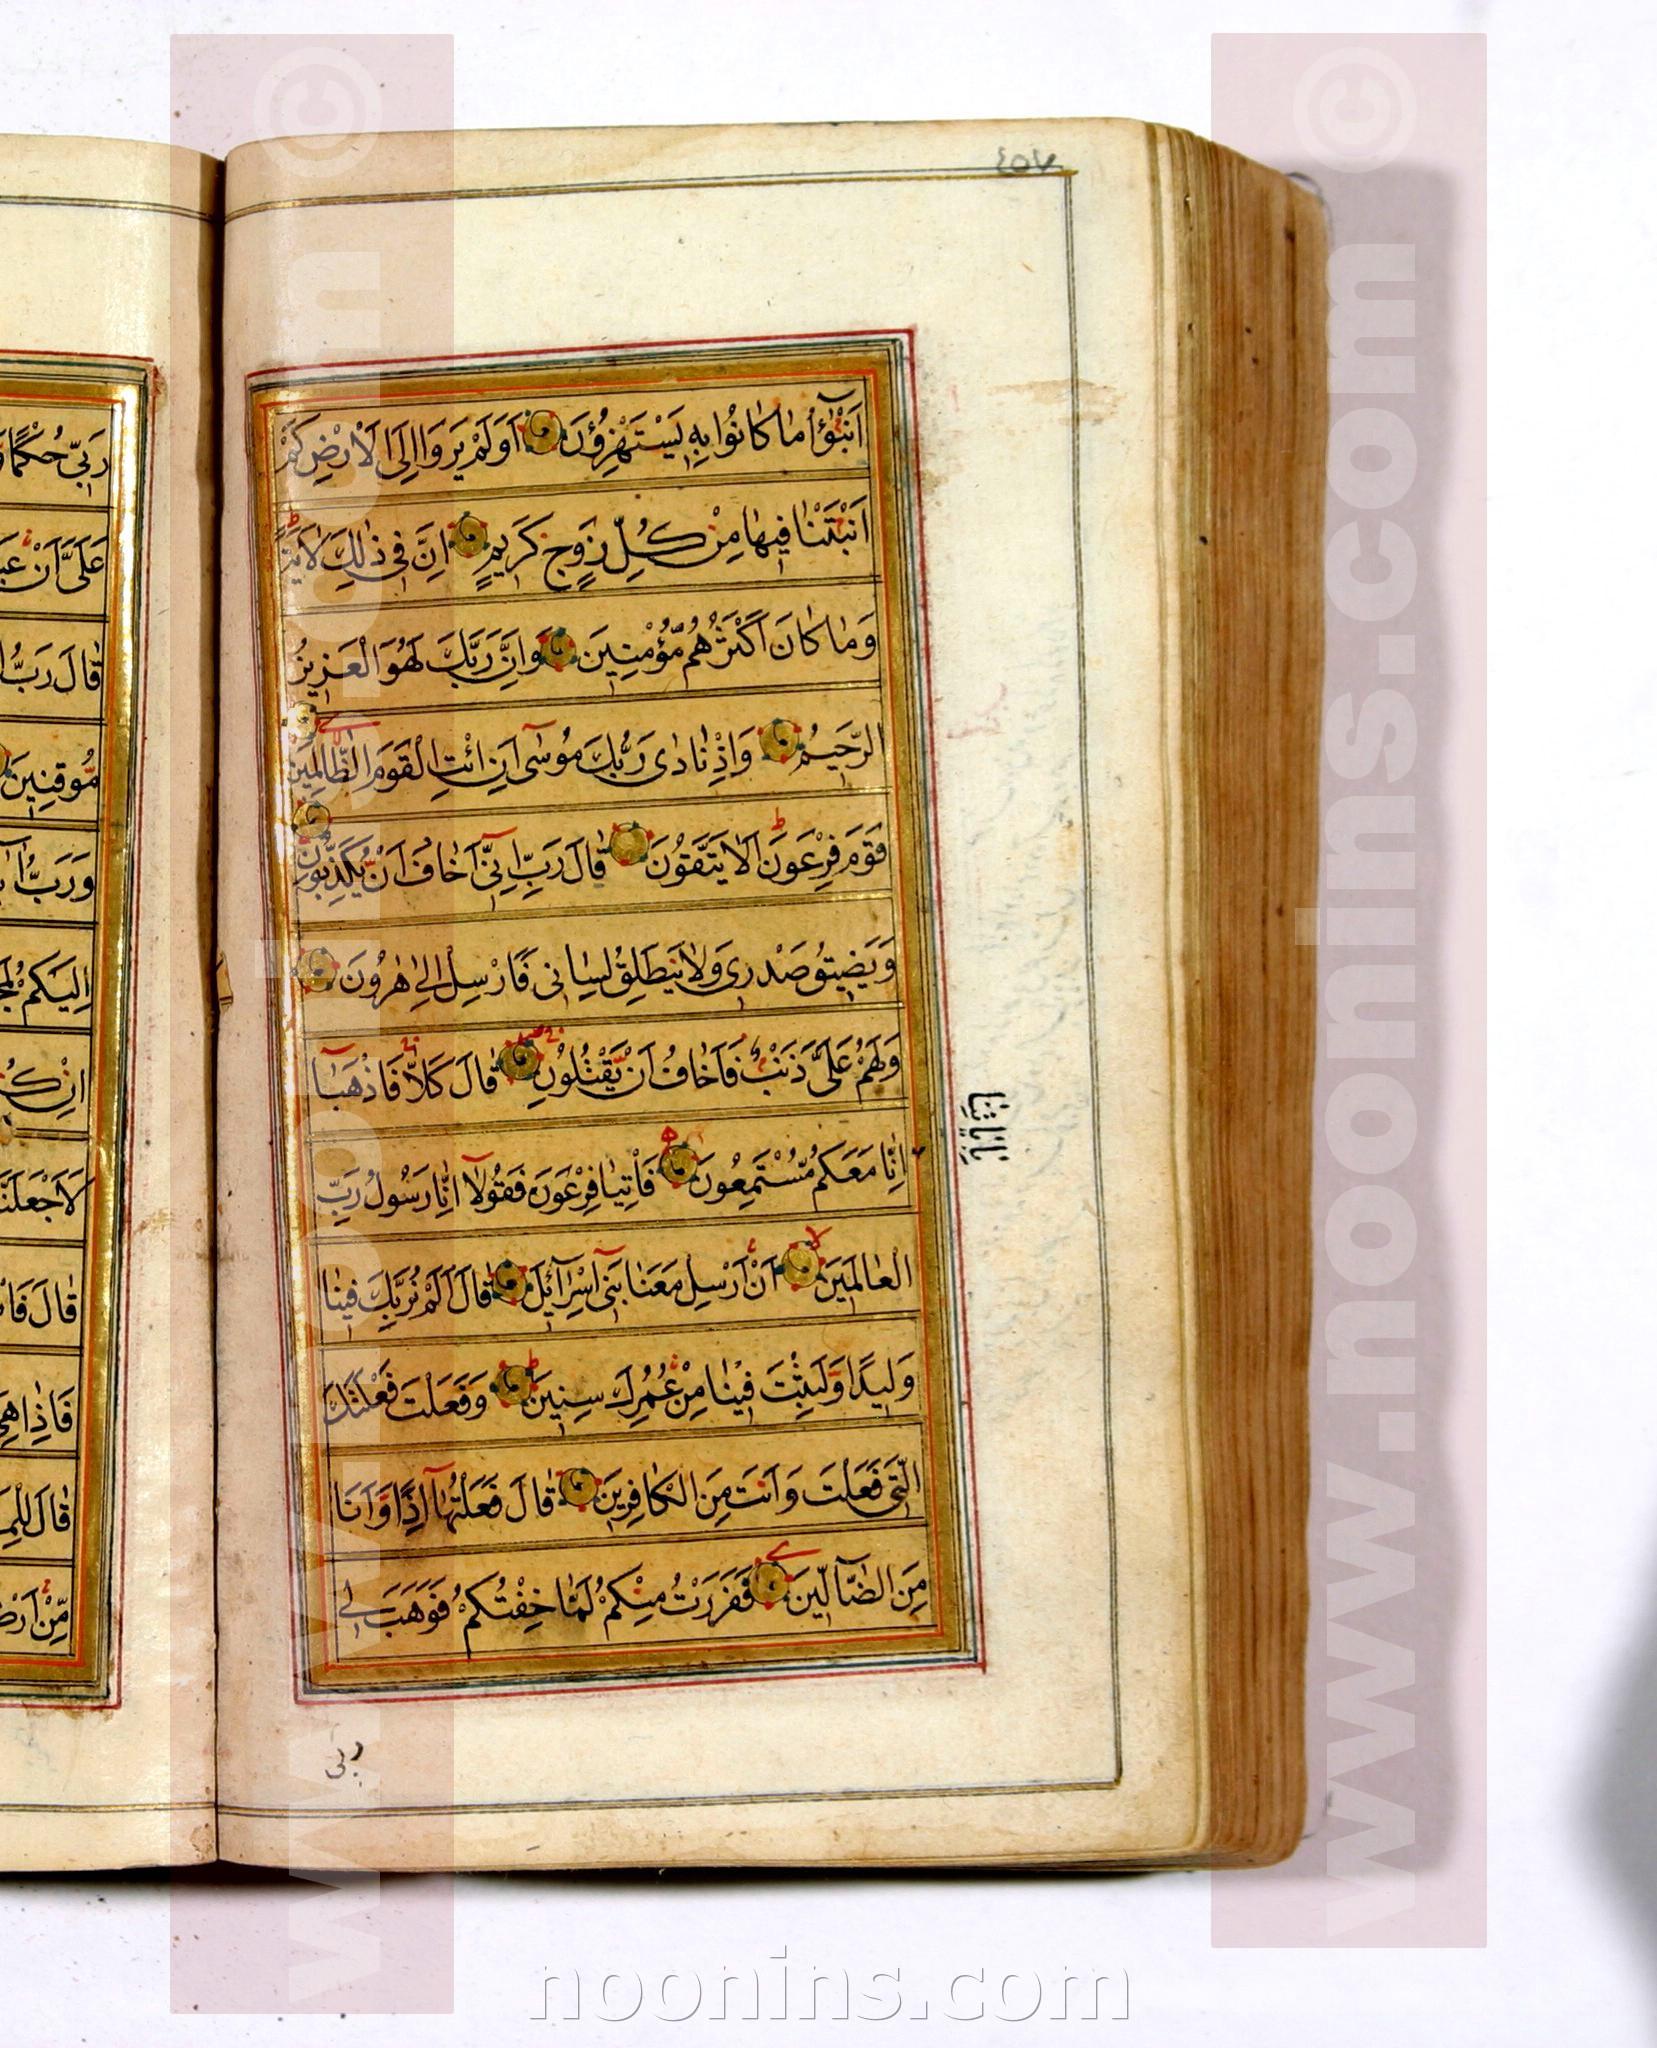 ٤٥٧
اَنْبٰٓؤُا مٰا كٰانُوا بِهِ يَسْتَهْزِؤُنَ اَوَلَمْ يَرَوْا اِلَى الْاَرْضِ كَمْ
اَنْبَتْنٰا فِيهٰا مِنْ كُلِّ زَوْجٍ كَرِيمٍ اِنَّ فِي ذٰلِكَ لَاٰيَةً
وَمٰا كٰانَ اَكْثَرُهُمْ مُؤْمِنِينَ وَاِنَّ رَبَّكَ لَهُوَ الْعَزِيزُ
الرَّحِيمُ وَاِذْ نٰادٰى رَبُّكَ مُوسٰٓى اَنِ ائْتِ الْقَوْمَ الظّٰالِمِينَ
قَوْمَ فِرْعَوْنَ اَلٰا يَتَّقُونَ قٰالَ رَبِّ اِنِّٓي اَخٰافُ اَنْ يُكَذِّبُونِ
وَيَضِيقُ صَدْرِي وَلٰا يَنْطَلِقُ لِسٰانِي فَاَرْسِلْ اِلٰى هٰرُونَ
وَلَهُمْ عَلَيَّ ذَنْبٌ فَاَخٰافُ اَنْ يَقْتُلُونِ قٰالَ كَلّٰا فَاذْهَبٰا
بِاٰيٰاتِنٰا
اِنّٰا مَعَكُمْ مُسْتَمِعُونَ فَأْتِيٰا فِرْعَوْنَ فَقُولٰٓا اِنّٰا رَسُولُ رَبِّ
الْعٰالَمِينَ اَنْ اَرْسِلْ مَعَنٰا بَنِٓي اِسْرٰٓائِلَ قٰالَ اَلَمْ نُرَبِّكَ فِينٰا
وَلِيدًا وَلَبِثْتَ فِينٰا مِنْ عُمُرِكَ سِنِينَ وَفَعَلْتَ فَعْلَتَكَ
الَّتِي فَعَلْتَ وَاَنْتَ مِنَ الْكٰافِرِينَ قٰالَ فَعَلْتُهٰٓا اِذًا وَاَنَا
مِنَ الضّٰٓالِّينَ فَفَرَرْتُ مِنْكُمْ لَمّٰا خِفْتُكُمْ فَوَهَبَ لِي
ربى
رَبِّي حُكْمًا
عَلَيَّ اَنْ
قٰالَ رَبُّ
مُوقِنِينَ
وَرَبُّ
اِلَيْكُمْ
اِنْ
لَاَجْعَلَنَّ
قٰالَ
فَاِذٰا هِيَ
قٰالَ
مِنْ
www.noonins.com ©
www.noonins.com ©
noonins.com